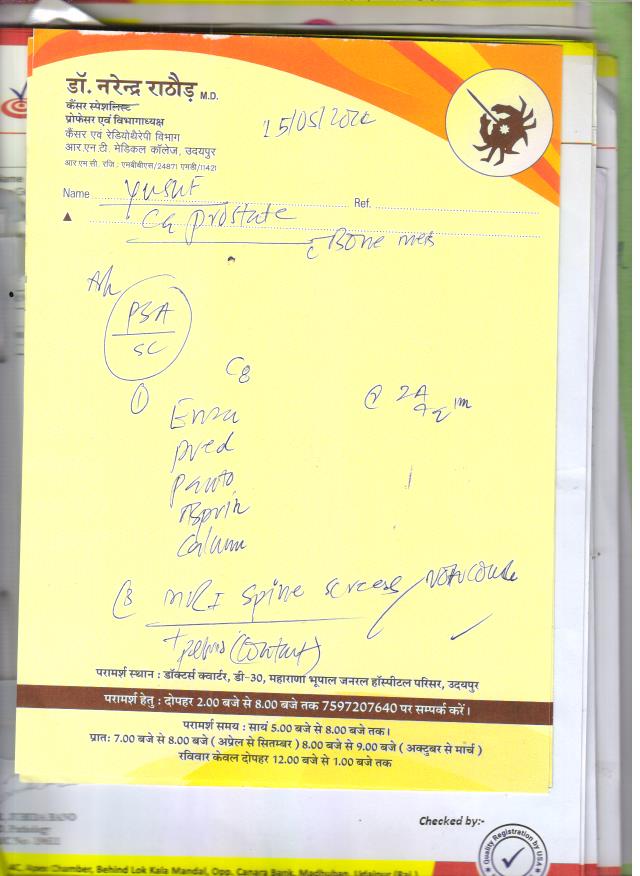 डॉ. नरेन्द्र राठौड़ M.D.
कैंसर स्पेशलिस्ट
प्रोफेसर एवं विभागाध्यक्ष
कैंसर एवं रेडियोथैरेपी विभाग
आर.एन.टी. मेडिकल कॉलेज, उदयपुर
आर.एम.सी. रजि. एमबीबीएस/24871 एमडी/11421
15/05/202
Name Yusuf Ref.
Ca prostate
c Bone mets
PSA
SC
①
Enza
pred
panto
Calium
MRI Spine screen
+ pelvis (Contrast)
परामर्श स्थान : डॉक्टर्स क्वार्टर, डी-30, महाराणा भूपाल जनरल हॉस्पीटल परिसर, उदयपुर
परामर्श हेतु : दोपहर 2.00 बजे से 8.00 बजे तक 7597207640 पर सम्पर्क करें।
परामर्श समय : सायं 5.00 बजे से 8.00 बजे तक।
प्रातः 7.00 बजे से 8.00 बजे ( अप्रेल से सितम्बर ) 8.00 बजे से 9.00 बजे ( अक्टुबर से मार्च )
रविवार केवल दोपहर 12.00 बजे से 1.00 बजे तक
Checked by:-
Quality Registration by USA
4C, Apex Chamber, Behind Lok Kala Mandal, Opp. Canara Bank, Madhuban, Udaipur (Raj.)